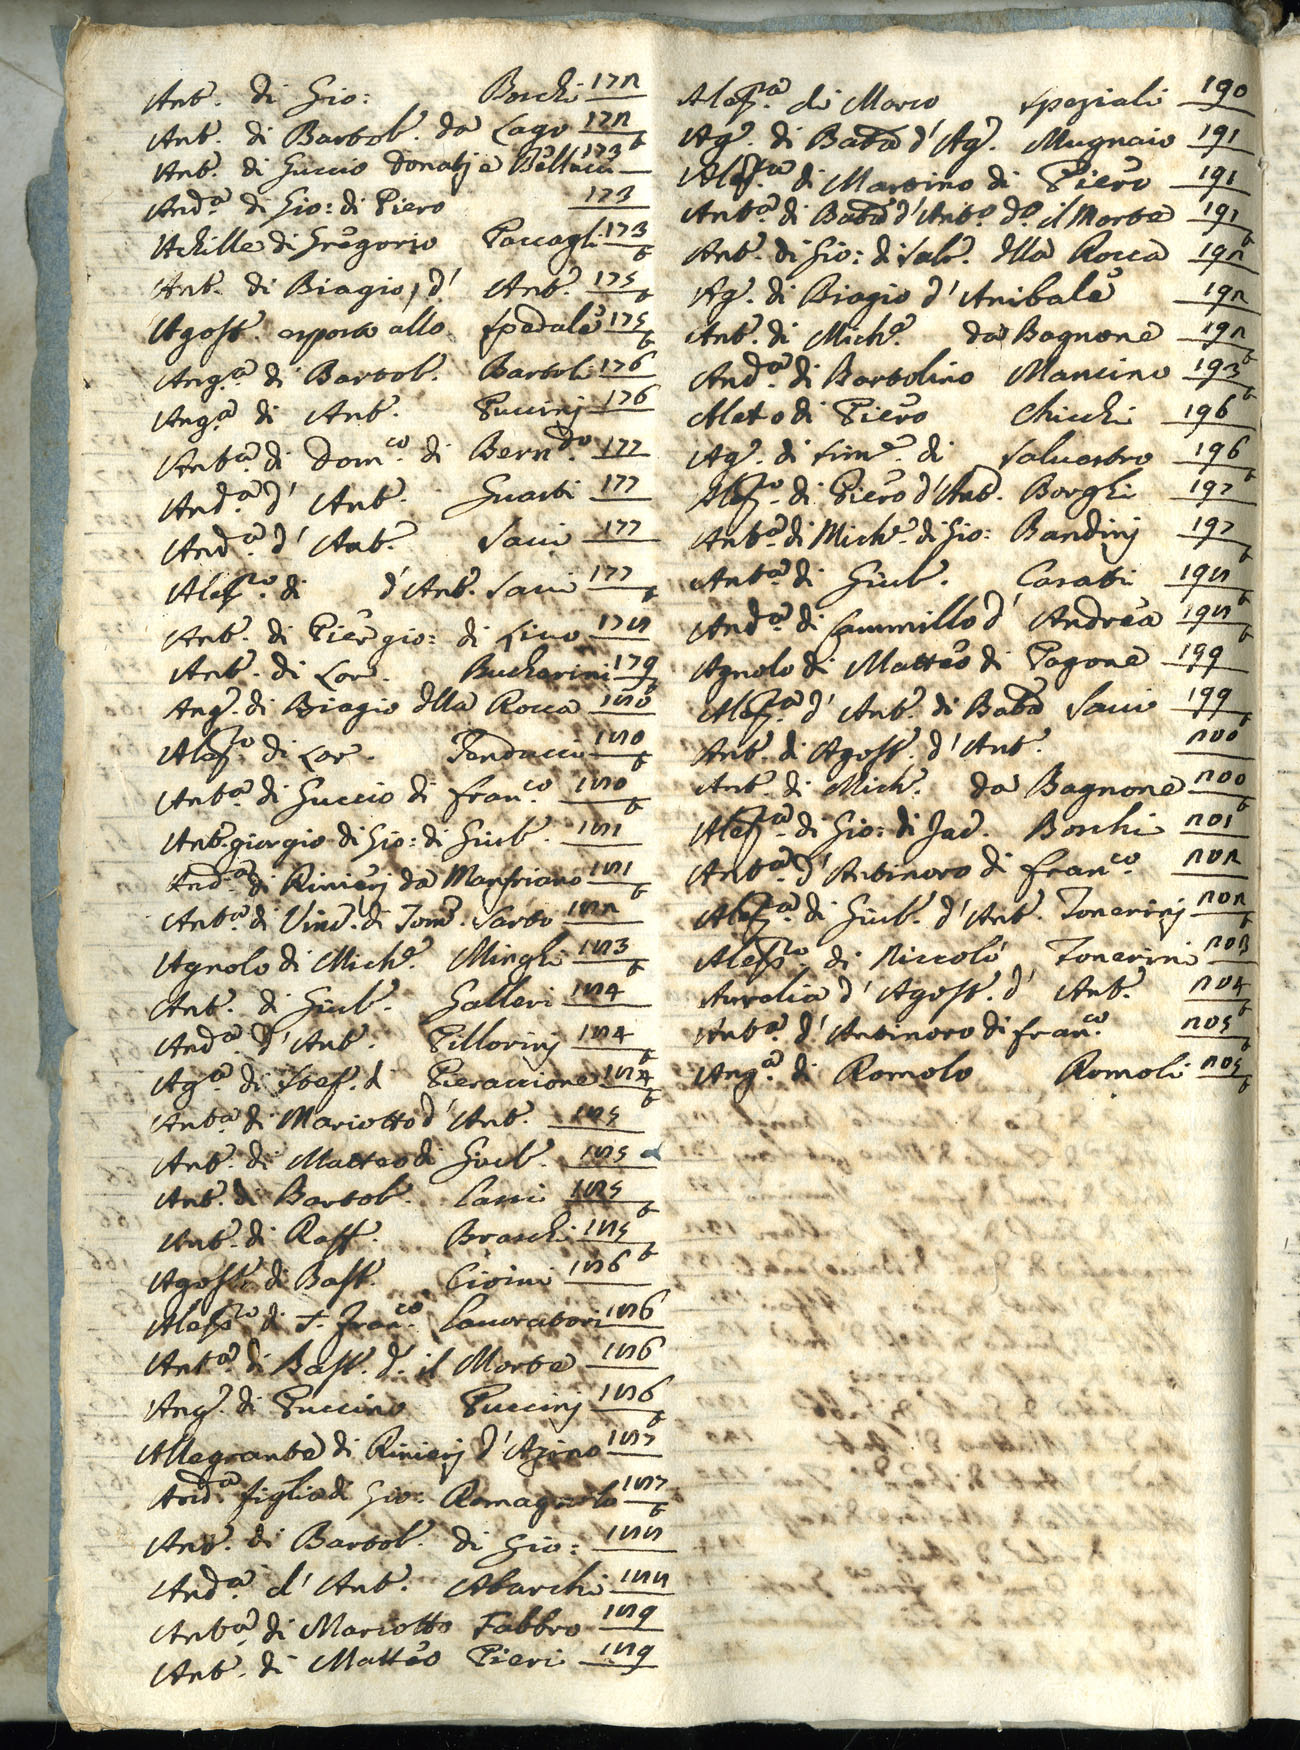 Ant.º di Gio: Boschi 172
Ant.º di Bartol.º da Lago 172 t
Ant.º di Guccio Donati e Bellucci 173
And.ª di Gio: di Piero 173
Achille di Gregorio Paccagli 173 t
Ant.º di Biagio, d' Ant.º 175 t
Agost.º esposto allo spedale 175 t
Ang.ª di Bartol.º Bartoli 176
Ang.ª di Ant.º Puccinj 176
Ant.ª di Dom.co di Bern.do 177
And.ª d' Ant.º Guasti 177
And.ª d' Ant.º Savi 177
Aless.ro di d'Ant.º Savi 177 t
Ant.º di Piergio: di Lino 178
Ant.º di Lor.º Bucherini 179
Ang.º di Biagio dlla Rocca 180 t
Aless.ro di Lor.º Tenducci 180 t
Ant.ª di Guccio di Fran.co 180 t
Ant.giorgio di Gio: di Giul.º 181
And.ª di Rinierj da Manfriano 181 t
Ant.ª di Vinc.º di Tom.º Sarto 182
Agnolo di Mich.e Minghi 183 t
Ant.º di Giul.º Galleri 184
And.ª d' Ant.º Pillorinj 184 t
Ag.ª di Stef.º di Pieraccione 184 t
Ant.ª di Mariotto d' Ant.º 185
Ant.º di Matteo di Giul.º 185
Ant.º di Bartol.º Cassi 185 t
Ant.º di Raff.º Braschi 185 t
Agost.º di Bast.º Civini 186
Aless.ro di S. Fran.co Lavoratori 186
Ant.ª di Bast.º d.º il Morte 186
Ang.º di Puccino Puccinj 186 t
Allegrante di Rinierj d' Azino 187
And.ª figlia di Gio: Romagnolo 187 t
Ant.º di Bartol.º di Gio: 188
And.ª d' Ant.º Abarchi 188
Ant.ª di Mariotto Fabbro 189
Ant.º di Matteo Pieri 189
Aless.ª di Marco Speziali 190
Ag.º di Bab.ª d' Ag.º Mugnaio 191
Aless.ª di Martino di Piero 191
Ant.ª di Bab.ª d' Ant.º d.º il Morte 191 t
Ant.º di Gio: di Salv.º dlla Rocca 192
Ag.º di Biagio d' Anibale 192
Ant.º di Mich.e da Bagnone 192 t
And.ª di Bartolino Mancino 193 t
Meto di Piero Chicchi 196
Ag.º di Sim.e di Salvestro 196 t
Aless.ro di Piero d' Ant.º Borghi 197
Ant.ª di Mich.e di Gio: Bandinj 197 t
Ant.ª di Giul.º Casati 198 t
And.ª di Cammillo d' Andrea 198 t
Agnolo di Matteo di Pagone 199
Aless.ª d' Ant.º di Bab.ª Savi 199 t
Ant.º di Agost.º d' Ant.º 200
Ant.º di Mich.e da Bagnone 200 t
Aless.ª di Gio: di Jac.º Boschi 201
Ant.ª d' Antinoro di Fran.co 202
Aless.ª di Giul.º d' Ant.º Tonerinj 202 t
Aless.ro di Niccolò Tonerini 203
Aurelia d' Agost.º d' Ant.º 204 t
Ant.ª d' Antinoro di Fran.co 205 t
Ang.ª di Romolo Romoli 205 t